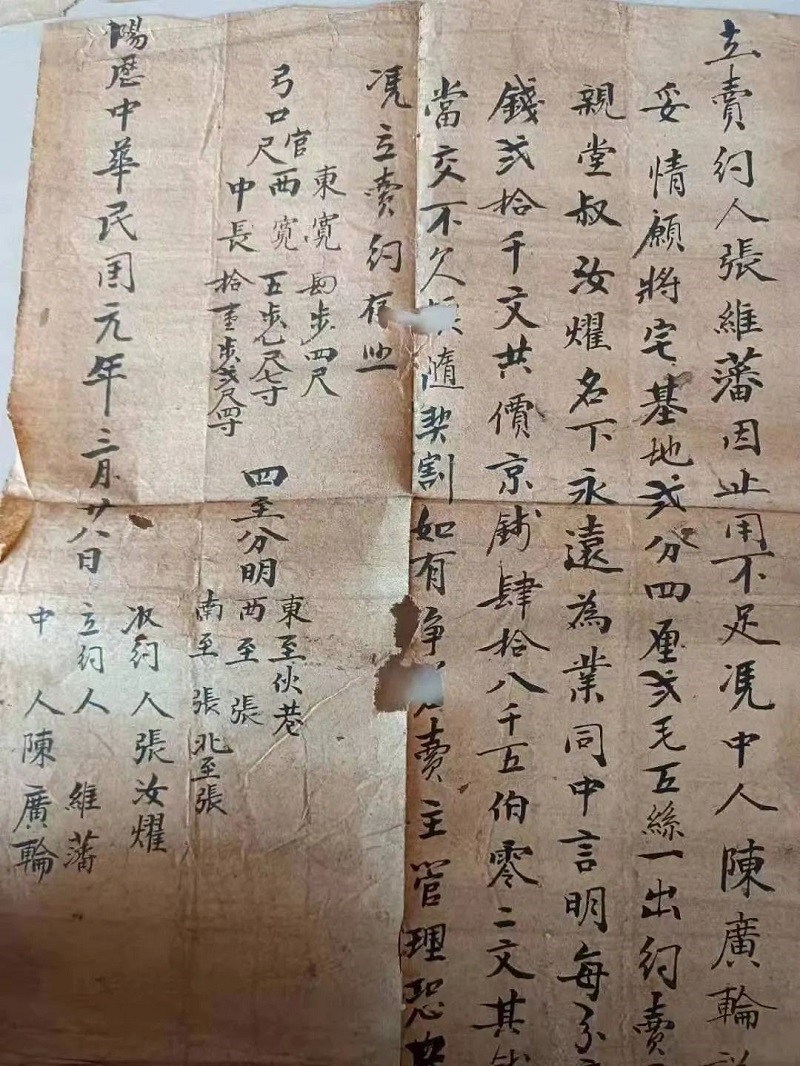 立賣約人張維藩因正用不足凴中人陳廣輪説
妥情願將宅基地弍分四厘弍毛五絲一出約賣
親堂叔汝耀名下永遠為業同中言明每分
錢弍拾千文共價京錢肆拾八千五伯零二文其錢
當交不欠隨契割如有争賣主管理恐
凴立賣約存照
弓口官尺
東寬四步四尺
西寬五步乙尺七寸
中長拾壹步弍尺四寸
四至分明
東至伙巷
西至張
南至張北至張
陽歷中華民國元年三月廿八日
收約人張汝耀
立約人維藩
中人陳廣輪